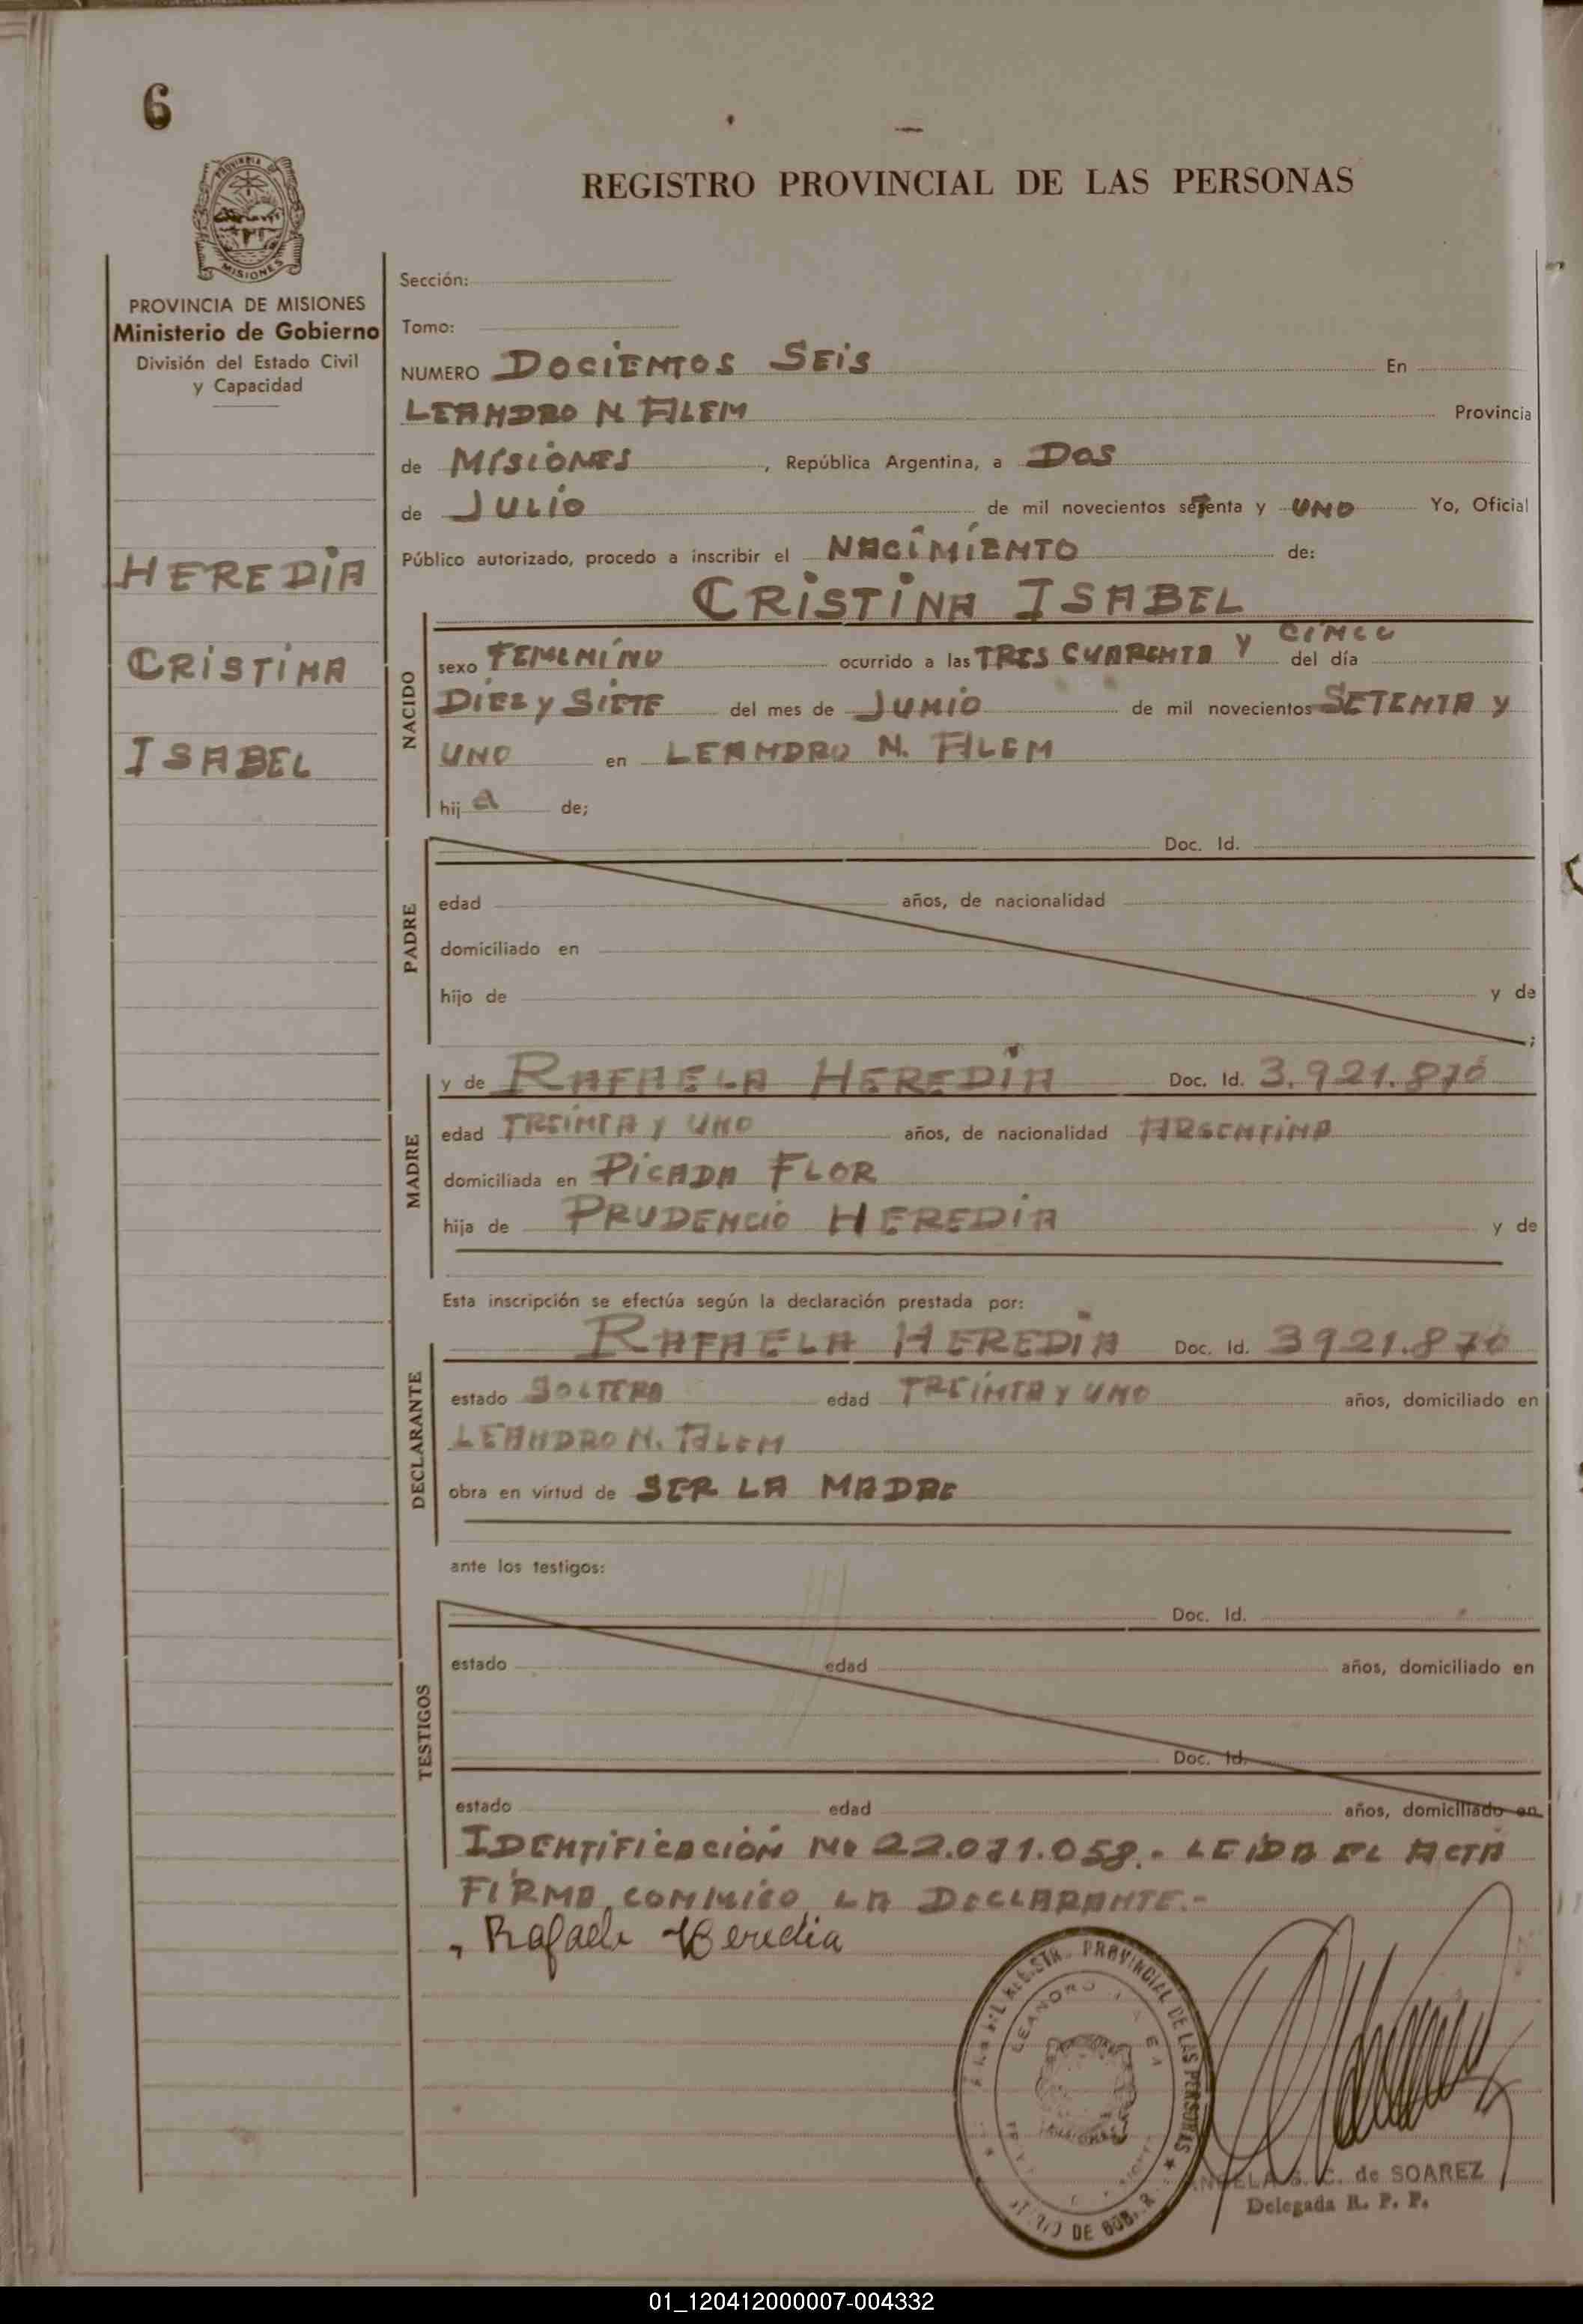 6
PROVINCIA
MISIONES
REGISTRO PROVINCIAL DE LAS PERSONAS
PROVINCIA DE MISIONES
Ministerio de Gobierno
División del Estado Civil
y Capacidad
HEREDIA
CRISTINA
ISABEL
Sección:
Tomo:
NUMERO DOCIENTOS SEIS En
LEANDRO N. ALEM Provincia
de MISIONES, República Argentina, a DOS
de JULIO de mil novecientos setenta y UNO Yo, Oficial
Público autorizado, procedo a inscribir el NACIMIENTO de:
CRISTINA ISABEL
NACIDO
sexo FEMENINO ocurrido a las TRES CUARENTA Y CINCO del día
DIEZ y SIETE del mes de JUNIO de mil novecientos SETENTA y
UNO en LEANDRO N. ALEM
hija de;
PADRE
Doc. Id.
edad años, de nacionalidad
domiciliado en
hijo de y de
;
MADRE
y de RAFAELA HEREDIA Doc. Id. 3.921.876
edad TREINTA Y UNO años, de nacionalidad ARGENTINA
domiciliada en PICADA FLOR
hija de PRUDENCIO HEREDIA y de
Esta inscripción se efectúa según la declaración prestada por:
DECLARANTE
RAFAELA HEREDIA Doc. Id. 3921.876
estado SOLTERA edad TREINTA Y UNO años, domiciliado en
LEANDRO N. ALEM
obra en virtud de SER LA MADRE
ante los testigos:
TESTIGOS
Doc. Id.
estado edad años, domiciliado en
Doc. Id.
estado edad años, domiciliado en
IDENTIFICACIÓN No 22.071.058.- LEIDA EL ACTA
FIRMA CONMIGO LA DECLARANTE.-
Rafaela Heredia
PROVINCIAL DE LAS PERSONAS
LEANDRO
DE GOB
ANGELA S. C. de SOAREZ
Delegada R. P. P.
01_120412000007-004332